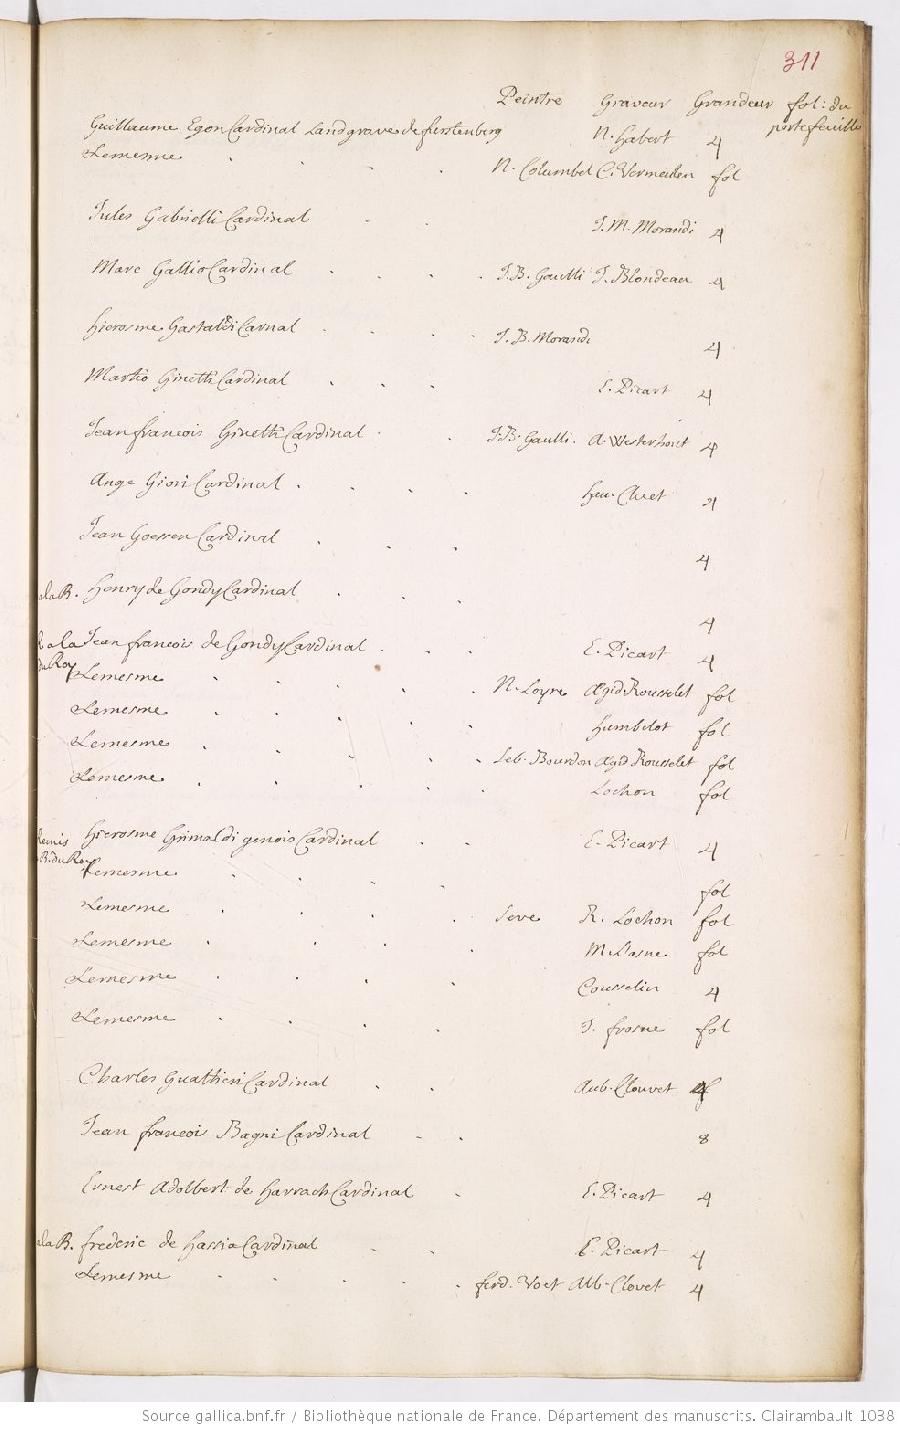 311
Peintre Graveur Grandeur fol: du portefeuille
Guillaume Egon Cardinal Landgrave de furstenberg N. Habert 4
Lemesme N. Columbel C. Vermeulen fol
Jules Gabrielli Cardinal J. M. Morandi 4
Marc Gallio Cardinal J. B. Gaulli J. Blondeau 4
hierosme Gastaldi Carnal J. B. Morandi 4
Martio Ginetti Cardinal E. Picart 4
Jean francois Ginetti Cardinal J. B. Gaulli. A. Westerhout 4
Ange Giori Cardinal 4
Jean Goessen Cardinal 4
a la B. Henry de Gondy Cardinal 4
a la du Roy Jean francois de Gondy Cardinal E. Picart 4
Lemesme N. Loyre Ægid Rousselet fol
Lemesme humbelot fol
Lemesme Seb. Bourdon Ægid Rousselet fol
Lemesme Lochon fol
Remis B. du Roy hierosme Grimaldi genois Cardinal E. Picart 4
Lemesme fol
Lemesme Seve R. Lochon fol
Lemesme M. Lasne fol
Lemesme Cousselin 4
Lemesme J. frosne fol
Charles Gualtieri Cardinal Aub. Clouvet
Jean francois Bagni Cardinal 8
Ernest Adolbert de Harrach Cardinal E. Picart 4
a la B. frederic de Hassia Cardinal E. Picart 4
Lemesme ferd. Voet Alb. Clovet 4
Source gallica.bnf.fr / Bibliothèque nationale de France. Département des manuscrits. Clairambault 1038